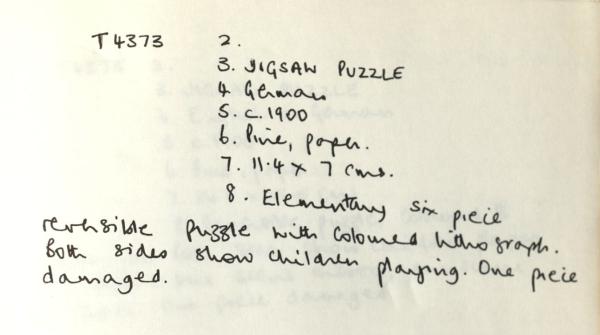 T4373 2.
3. JIGSAW PUZZLE
4 German
5. c.1900
6. Pine, paper.
7. 11.4 x 7 cms.
8. Elementary six piece
reversible puzzle with coloured lithograph.
Both sides show children playing. One piece
damaged.